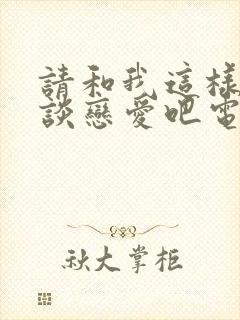 請和我這樣
談戀愛吧電
秋大掌柜